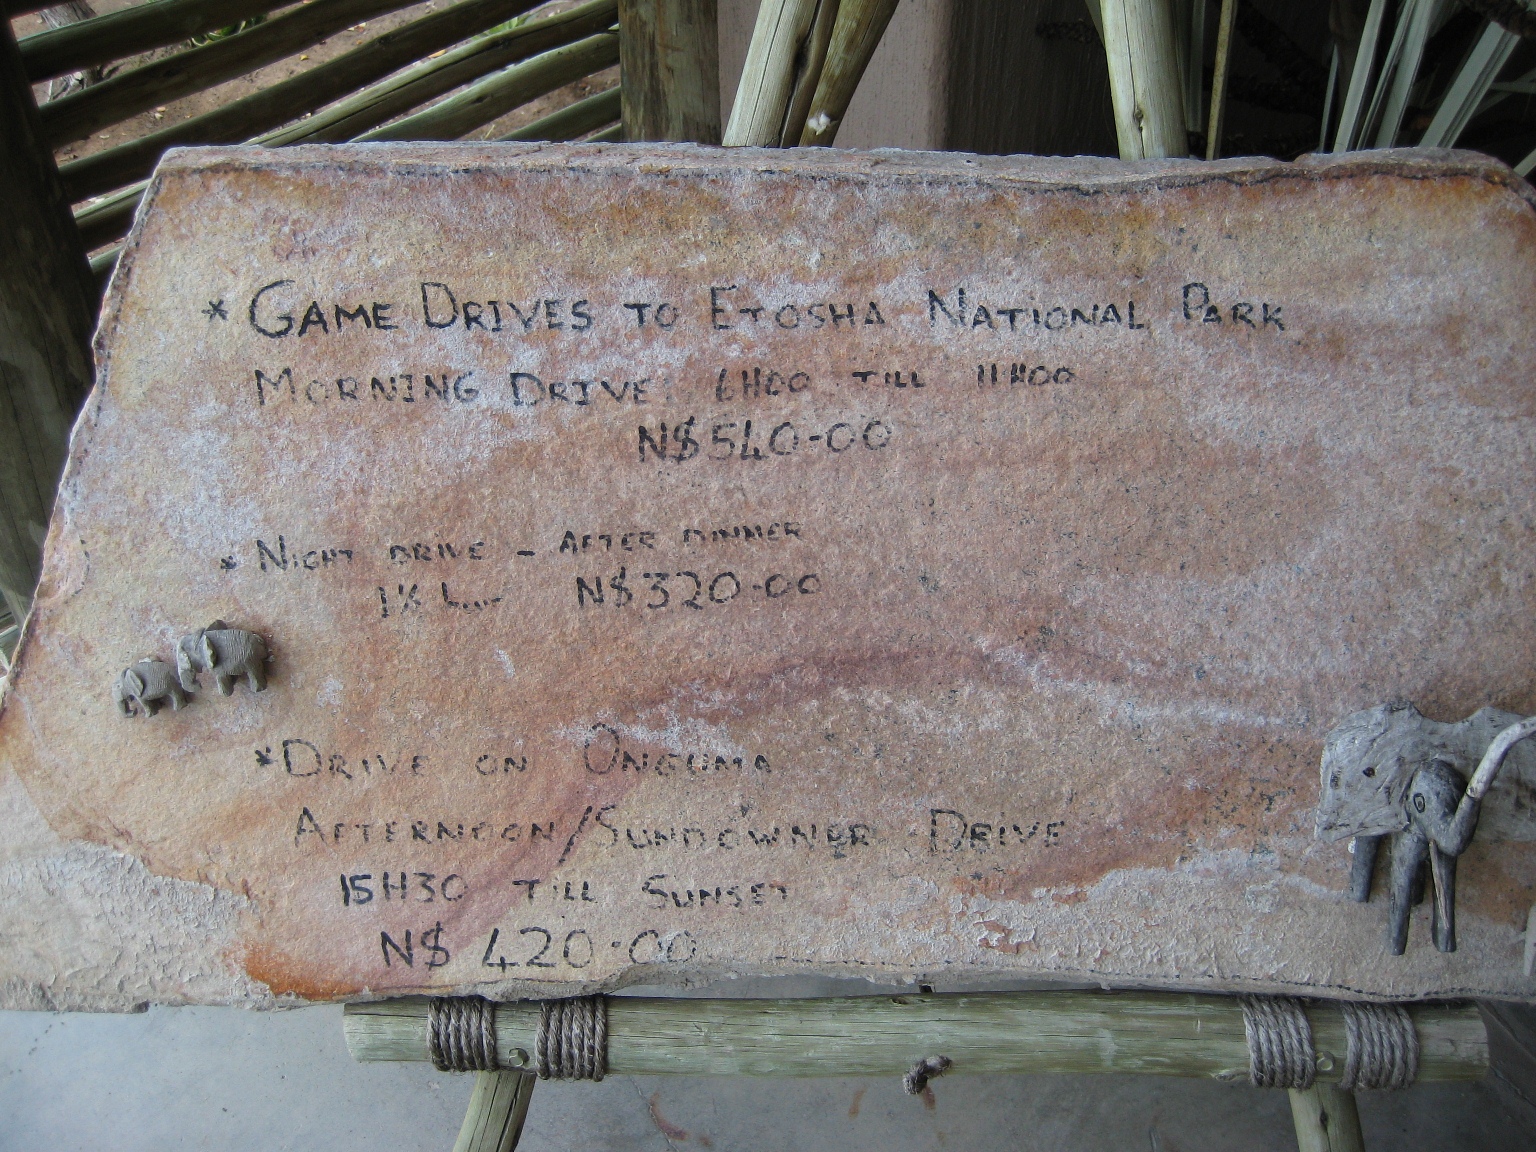 * GAME DRIVES TO ETOSHA NATIONAL PARK
MORNING DRIVE: 6H00 TILL 11H00
N$540-00
* NIGHT DRIVE - AFTER DINNER
1½ N$320-00
* DRIVE ON ONGUMA
AFTERNOON/SUNDOWNER DRIVE
15H30 TILL SUNSET
N$ 420-00